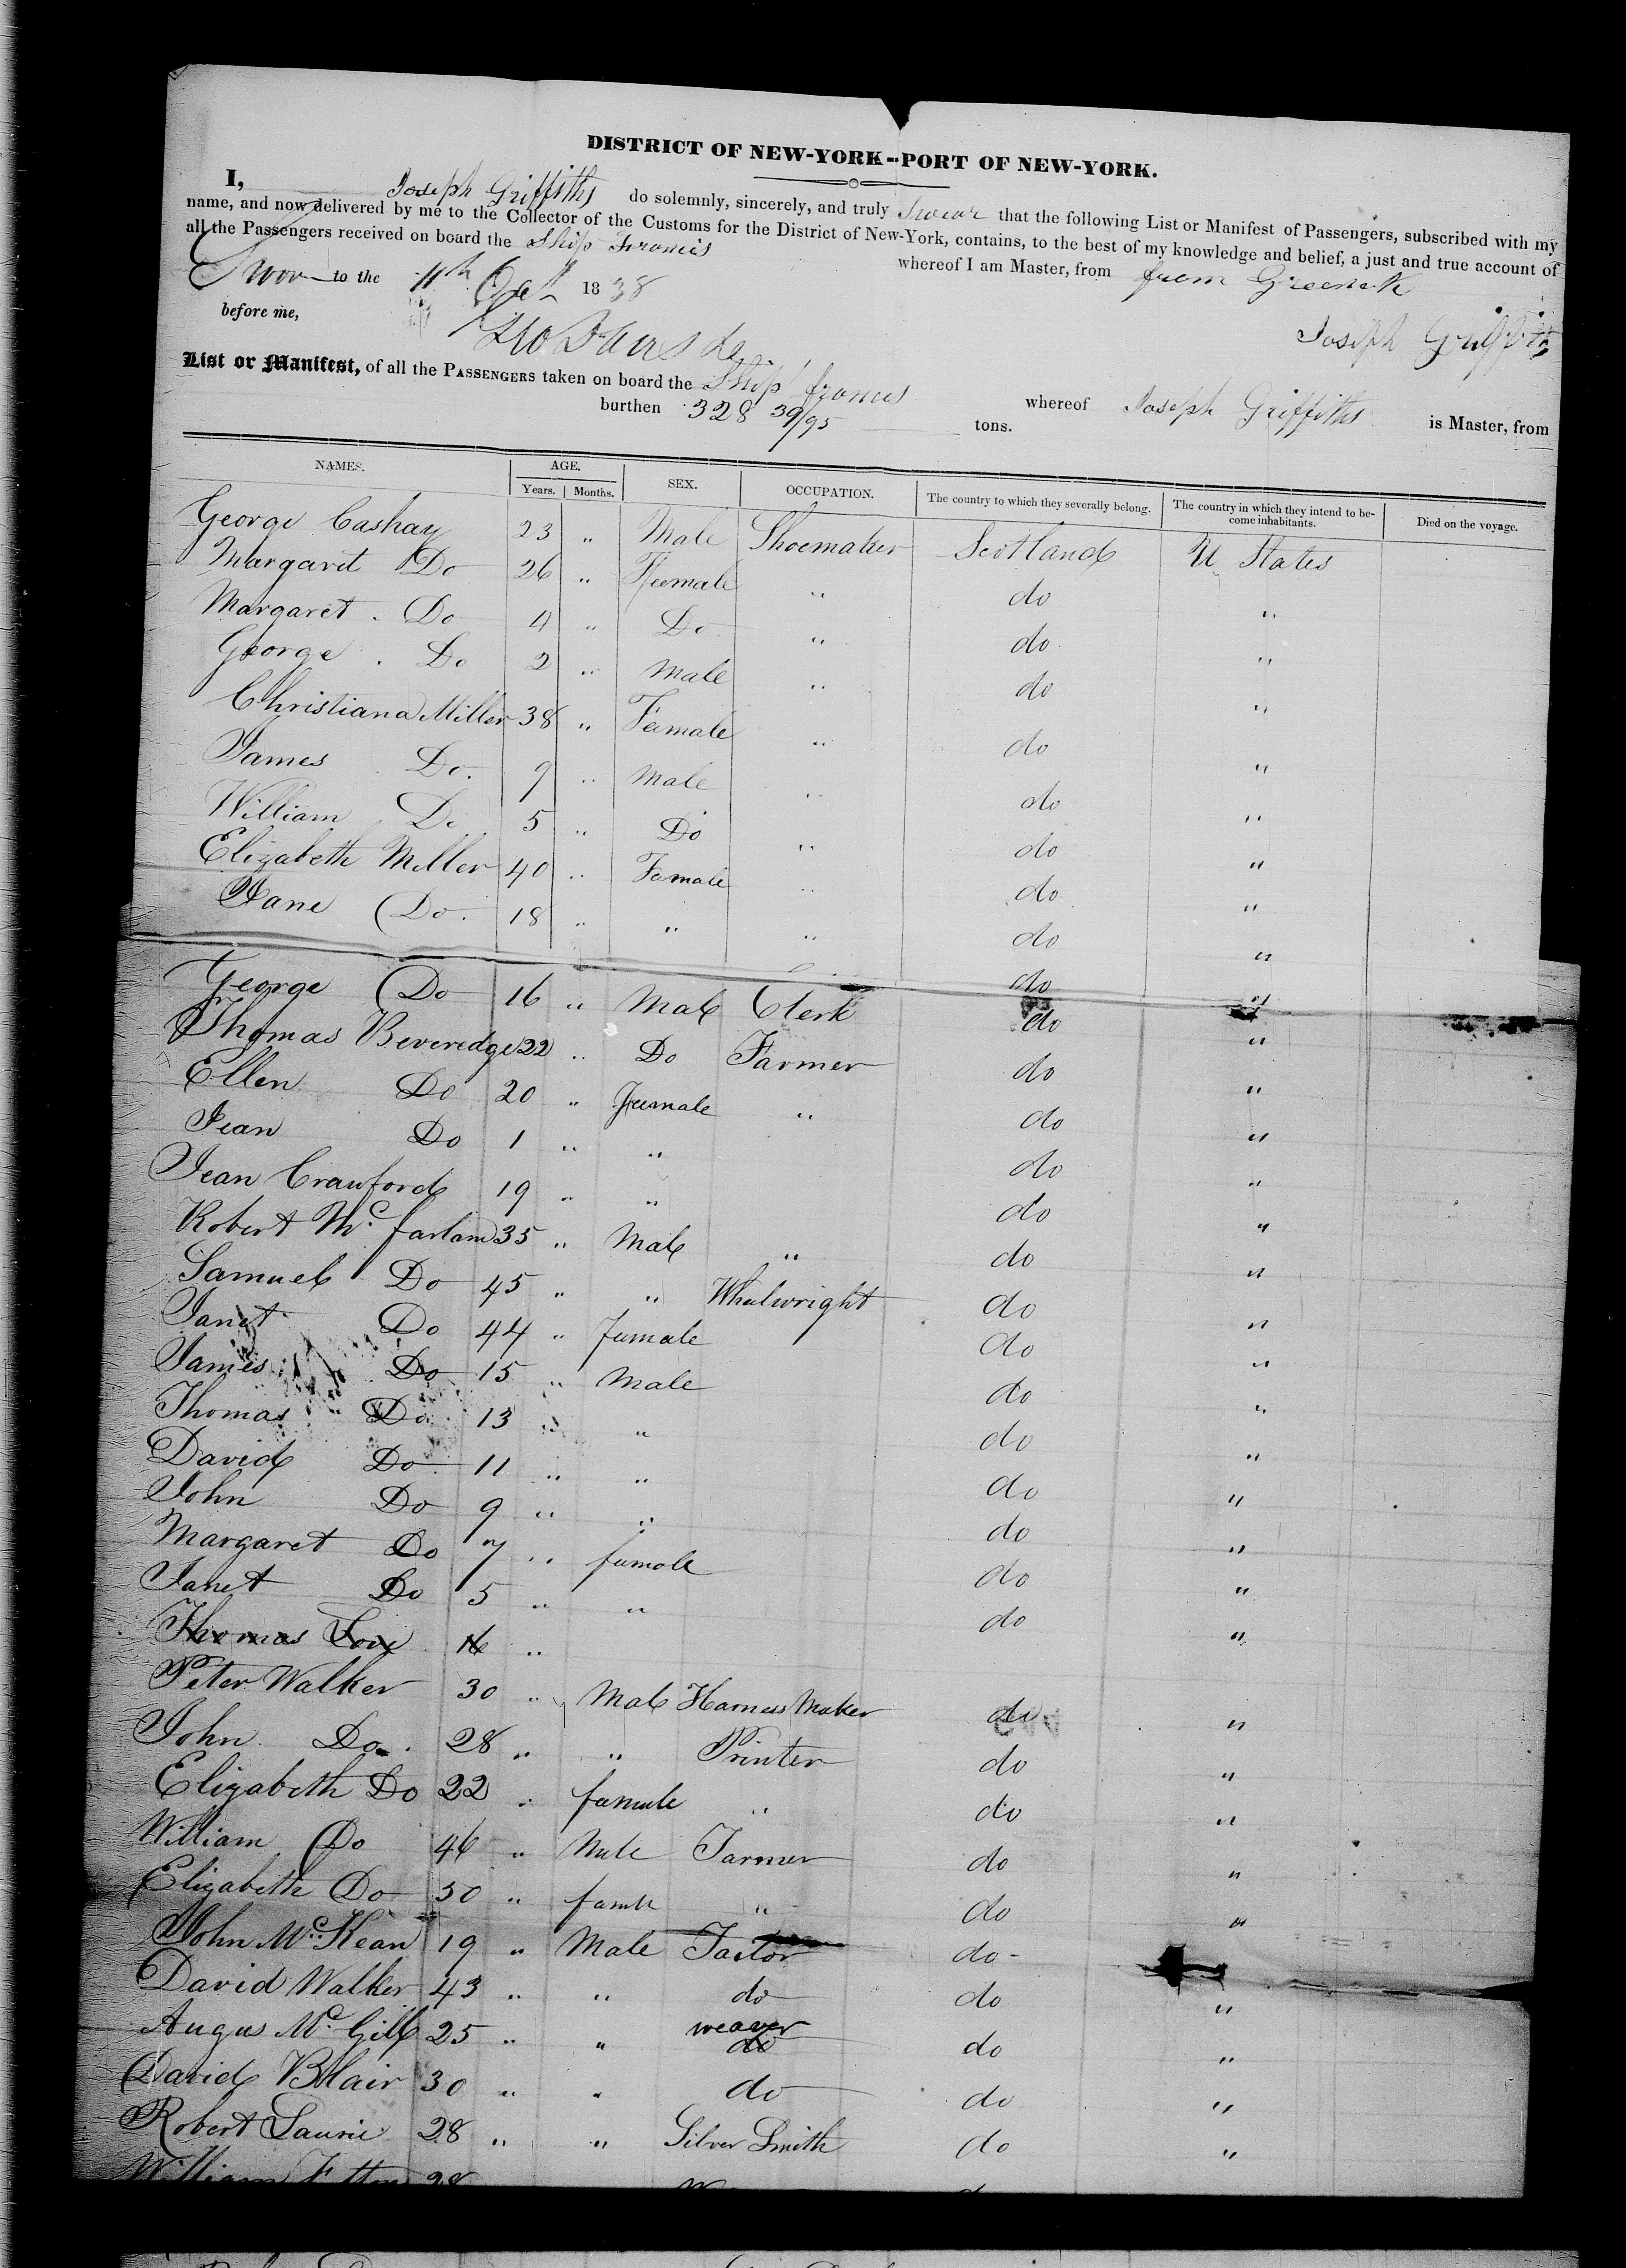 DISTRICT OF NEW-YORK--PORT OF NEW-YORK.
I, Joseph Griffiths do solemnly, sincerely, and truly swear that the following List or Manifest of Passengers, subscribed with my
name, and now delivered by me to the Collector of the Customs for the District of New-York, contains, to the best of my knowledge and belief, a just and true account of
all the Passengers received on board the Ship Francis whereof I am Master, from from Greenock
Swor to the 11th Oct 1838
before me, Joseph Griffiths
List or Manifest, of all the PASSENGERS taken on board the Ship francis whereof Joseph Griffiths is Master, from
burthen 328 39/95 tons.
NAMES. AGE. SEX. OCCUPATION. The country to which they severally belong. The country in which they intend to become inhabitants. Died on the voyage.
Years. Months.
George Cashay 23 " Male Shoemaker Scotland U States
Margaret Do 26 " Feemale " do "
Margaret Do 4 " Do " do "
George Do 2 " Male " do "
Christiana Miller 38 " Feemale " do "
James Do. 9 " Male " do "
William Do 5 " Do " do "
Elizabeth Miller 40 " Female " do "
Jane Do. 18 " " " do "
George Do 16 " Male Clerk do "
do
Thomas Beveredge 22 " Do Farmer do "
Ellen Do 20 " Feemale " do "
Jean Do 1 " " do "
Jean Crawford 19 " " do "
Robert Mc farlam 35 " Male " do "
Samuel Do 45 " " Whelwright do "
Janet Do 44 " female do "
James Do 15 " Male do "
Thomas Do 13 " " do "
David Do 11 " " do "
John Do 9 " " do "
Margaret Do 7 " female do "
Janet Do 5 " " do "
Thomas Love 16 "
Peter Walker 30 " Male Harness Maker do "
John Do. 28 " " Printer do "
Elizabeth Do 22 " female " do "
William Do 46 " Male Farmer do "
Elizabeth Do 30 " " do "
John McKean 19 " Male do
David Walker 43 " " do do "
Augus McGill 25 " " weaver do do "
David Blair 30 " " do do "
Robert Laurie 28 " " Silver Smith do "
William 28